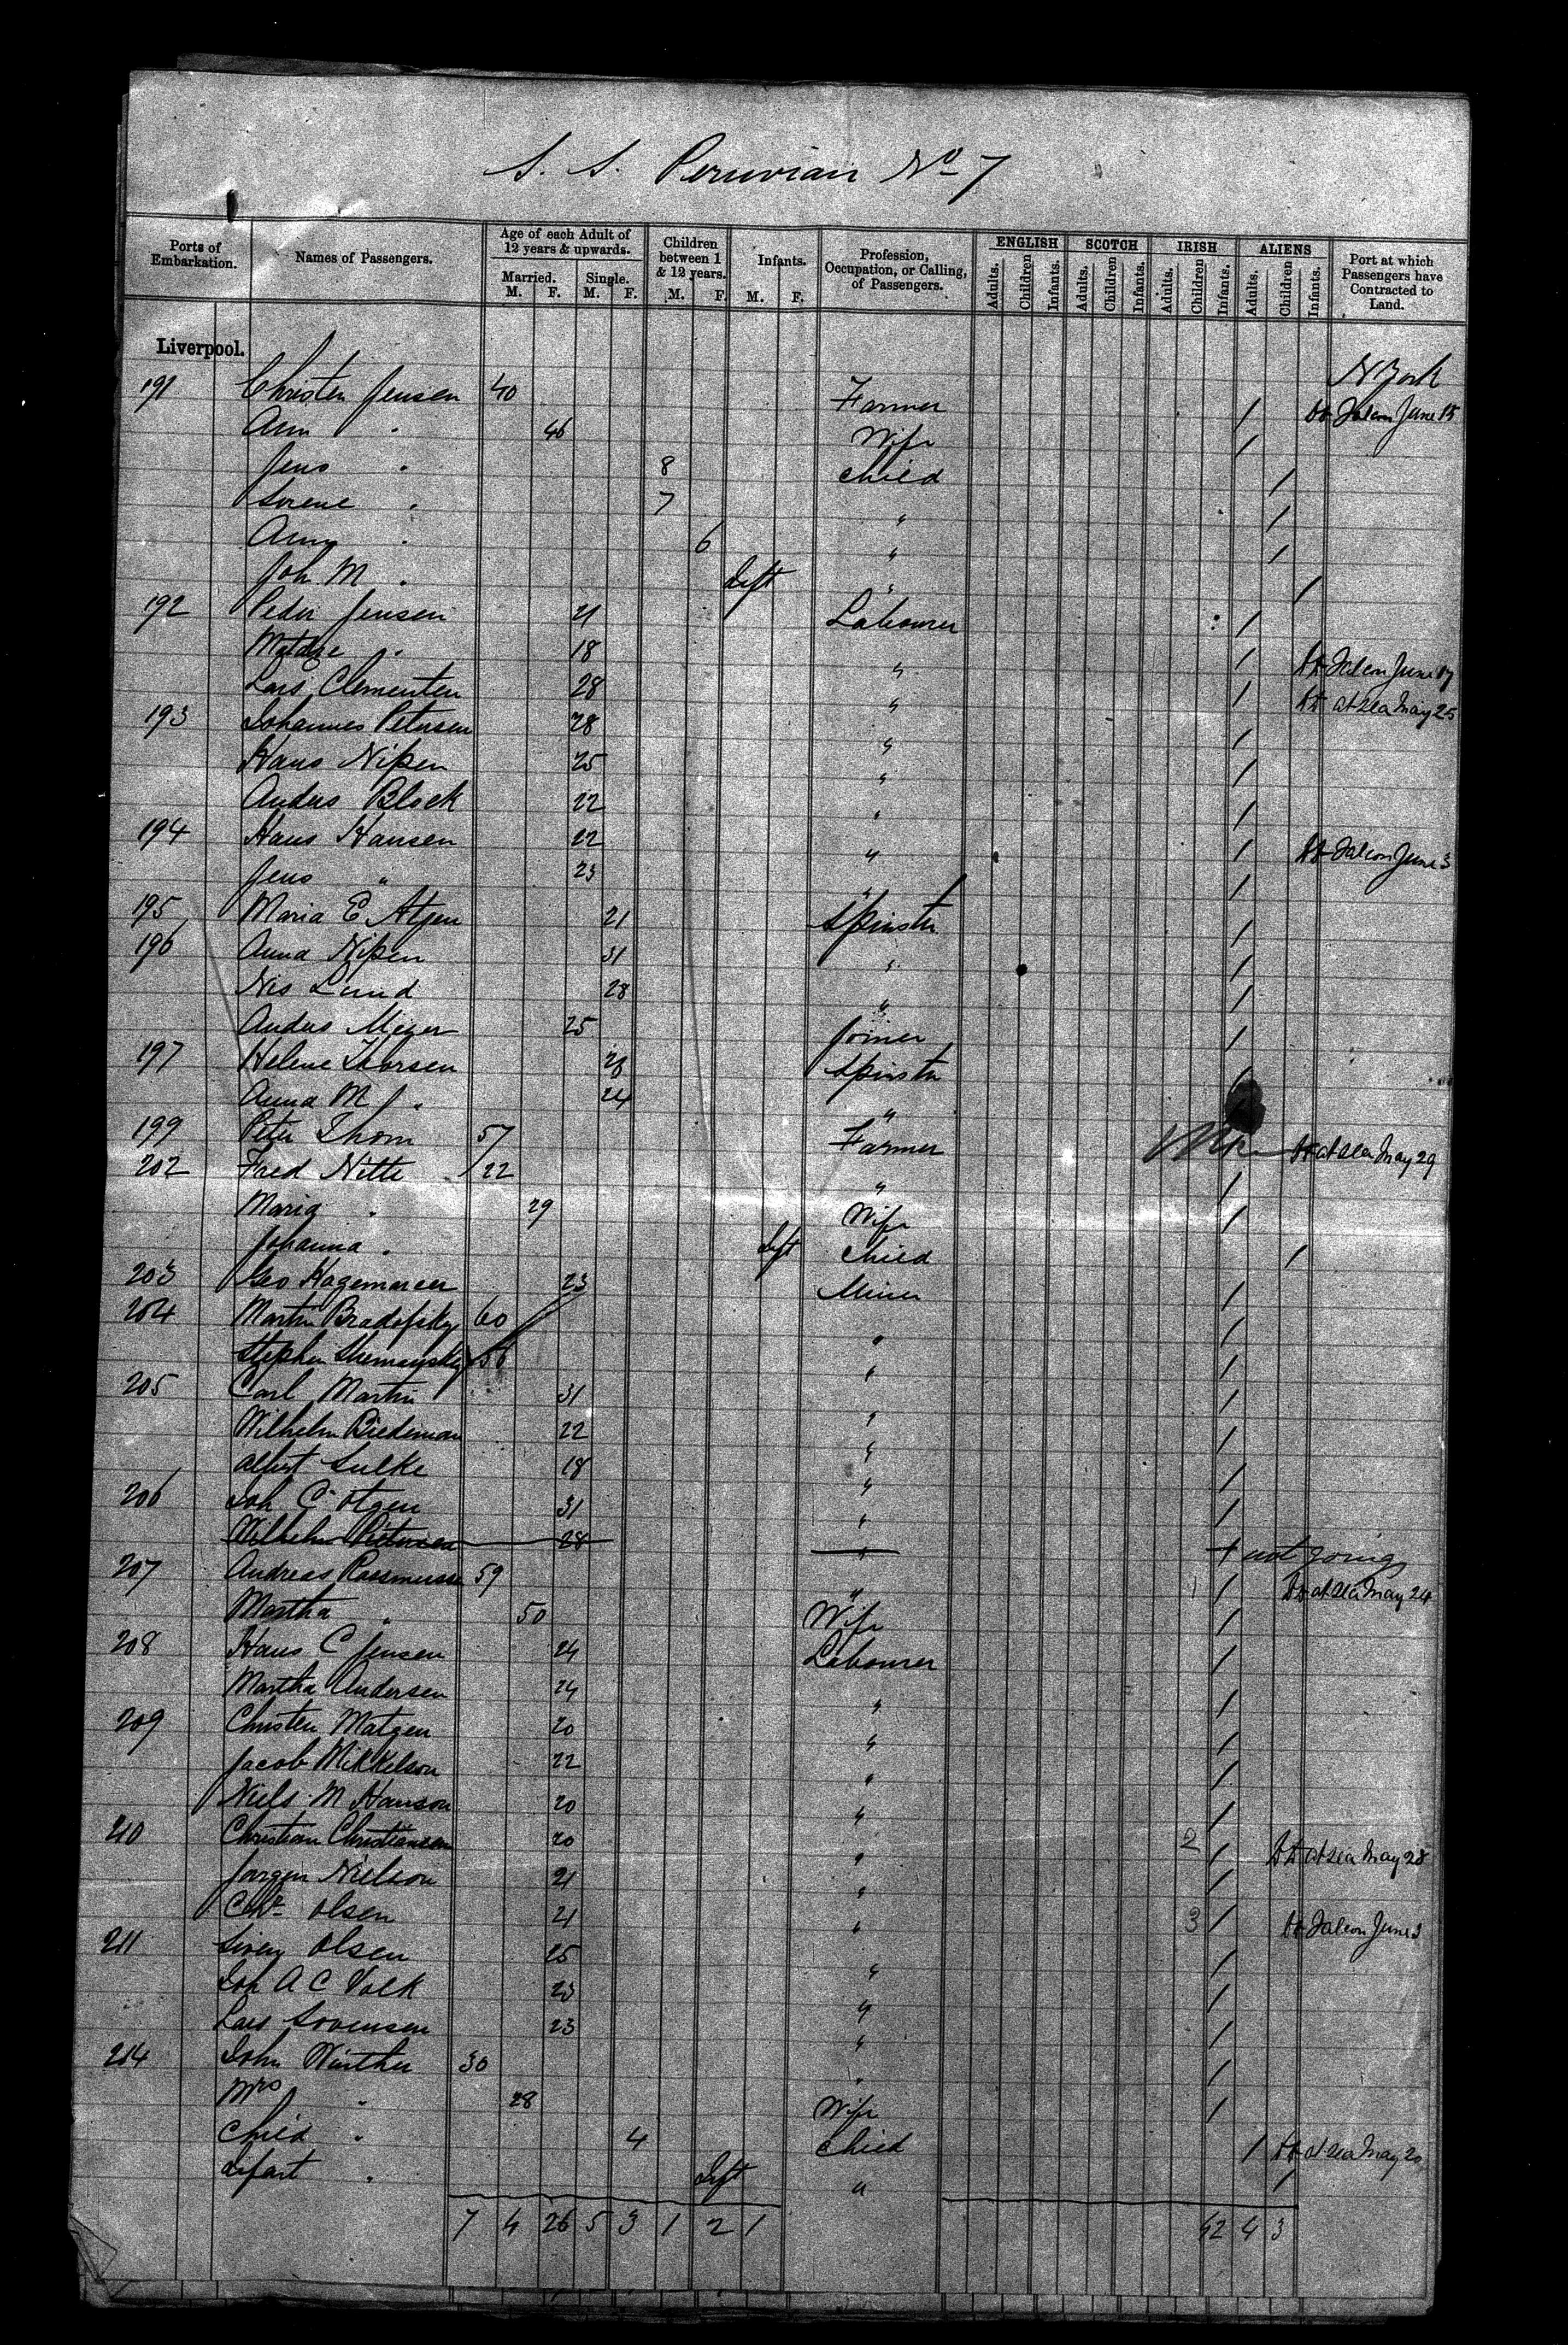 S. S. Peruvian No 7
Ports of Embarkation. Names of Passengers. Age of each Adult of 12 years & upwards. Married. M. F. Single. M. F. Children between 1 & 12 years. M. F. Infants. M. F. Profession, Occupation, or Calling, of Passengers. ENGLISH Adults. Children Infants. SCOTCH Adults. Children Infants. IRISH Adults. Children Infants. ALIENS Adults. Children Infants. Port at which Passengers have Contracted to Land.
Liverpool.
N York
191 Christen Jensen 40 Farmer / June 15
Ann " 46 Wife /
Jens " 8 child /
Sorene " 7 " /
Amy " 6 " /
Joh M " Inft " /
192 Peder Jensen 21 Labourer /
18 " / June 17
Lars Clementen 28 " / at sea May 25
193 Johannes Petersen 28 " /
Hans Nipen 25 " /
Anders Block 22 " /
194 Hans Hansen 22 " / June 3
Jens " 23 " /
195 Maria E Atzen 21 Spinster /
196 Anna Nipen 31 " /
Nis Lund 28 " /
Anders Meyer 25 Joiner /
197 Helene Thorsen Spinster /
Anna M " 24 "
199 Peter Thom 57 Farmer at sea May 29
202 Fred Nitte 22 " /
Maria " 29 Wife /
Johanna " Inft child /
203 Geo Hagemarcer 23 Miner /
204 Martin Bradofsky 60 " /
Stephen Shemansky 56 " /
205 Carl Martin 31 " /
Wilhelm Biedeman 22 " /
Albert Sulke 18 " /
206 Joh C Otzen 31 " /
Wilhelm Petersen 28 " / not going
207 Andreas Rasmussen 59 " 1 / at sea May 24
Martha " 50 Wife /
208 Hans C Jensen 24 Labourer /
Martha Andersen 24 " /
209 Christen Matzen 20 " /
Jacob Mikkelson 22 " /
Niels M Hanson 20 " /
210 Christian Christiansen 20 " 2 / at sea May 28
Jorgen Nielson 21 " /
Chr Olsen 21 " 3 / June 3
211 Olsen 25 " /
Joh A C Volk 23 " /
Lars Sorensen 23 " /
214 John Winther 30 " /
Mrs " 28 Wife /
Child " 4 child / at sea May 20
Infant " Inft " /
7 4 26 5 3 1 2 1 42 4 3